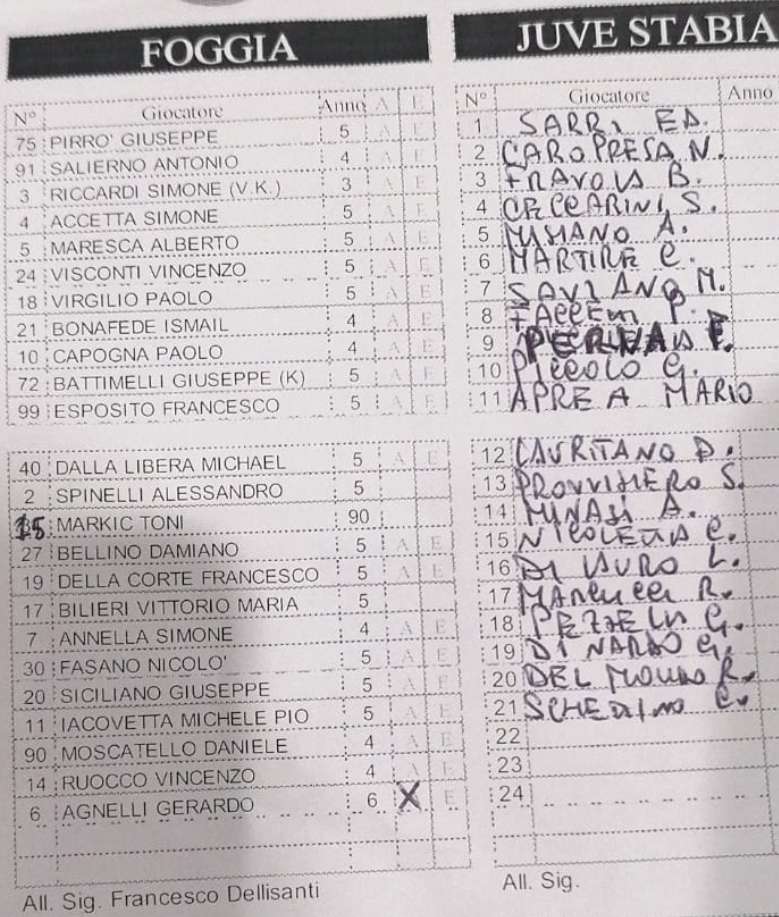 FOGGIA
N° Giocatore Anno A E
75 PIRRO' GIUSEPPE 5 A E
91 SALIERNO ANTONIO 4 A E
3 RICCARDI SIMONE (V.K.) 3 A E
4 ACCETTA SIMONE 5 A E
5 MARESCA ALBERTO 5 A E
24 VISCONTI VINCENZO 5 A E
18 VIRGILIO PAOLO 5 A E
21 BONAFEDE ISMAIL 4 A E
10 CAPOGNA PAOLO 4 A E
72 BATTIMELLI GIUSEPPE (K) 5 A E
99 ESPOSITO FRANCESCO 5 A E
40 DALLA LIBERA MICHAEL 5 A E
2 SPINELLI ALESSANDRO 5
15 MARKIC TONI 90
27 BELLINO DAMIANO 5 A E
19 DELLA CORTE FRANCESCO 5 A E
17 BILIERI VITTORIO MARIA 5
7 ANNELLA SIMONE 4 A E
30 FASANO NICOLO' 5 A E
20 SICILIANO GIUSEPPE 5 A E
11 IACOVETTA MICHELE PIO 5 A E
90 MOSCATELLO DANIELE 4 A E
14 RUOCCO VINCENZO 4 A E
6 AGNELLI GERARDO 6 X E
All. Sig. Francesco Dellisanti
JUVE STABIA
N° Giocatore Anno
1 SARRI ED.
2 CAROPRESA N.
3 FRAVOLA B.
4 CECCARINI S.
5 A.
6 MARTIRE C.
7 SAVIANO M.
8 P.
9 F.
10 PICCOLO G.
11 APREA MARIO
12 LAURITANO D.
13 PROVVISIERO S.
14 MINASI A.
15 NICOLETTA C.
16 DI LAURO L.
17 MARLUCCI R.
18 PEZZELLA G.
19 DI NARDO G.
20 DEL R.
21 SCHEDINO C.
22
23
24
All. Sig.